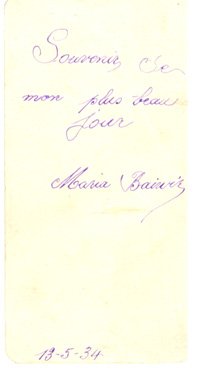 Souvenir de
mon plus beau
jour
Maria
13-5-34